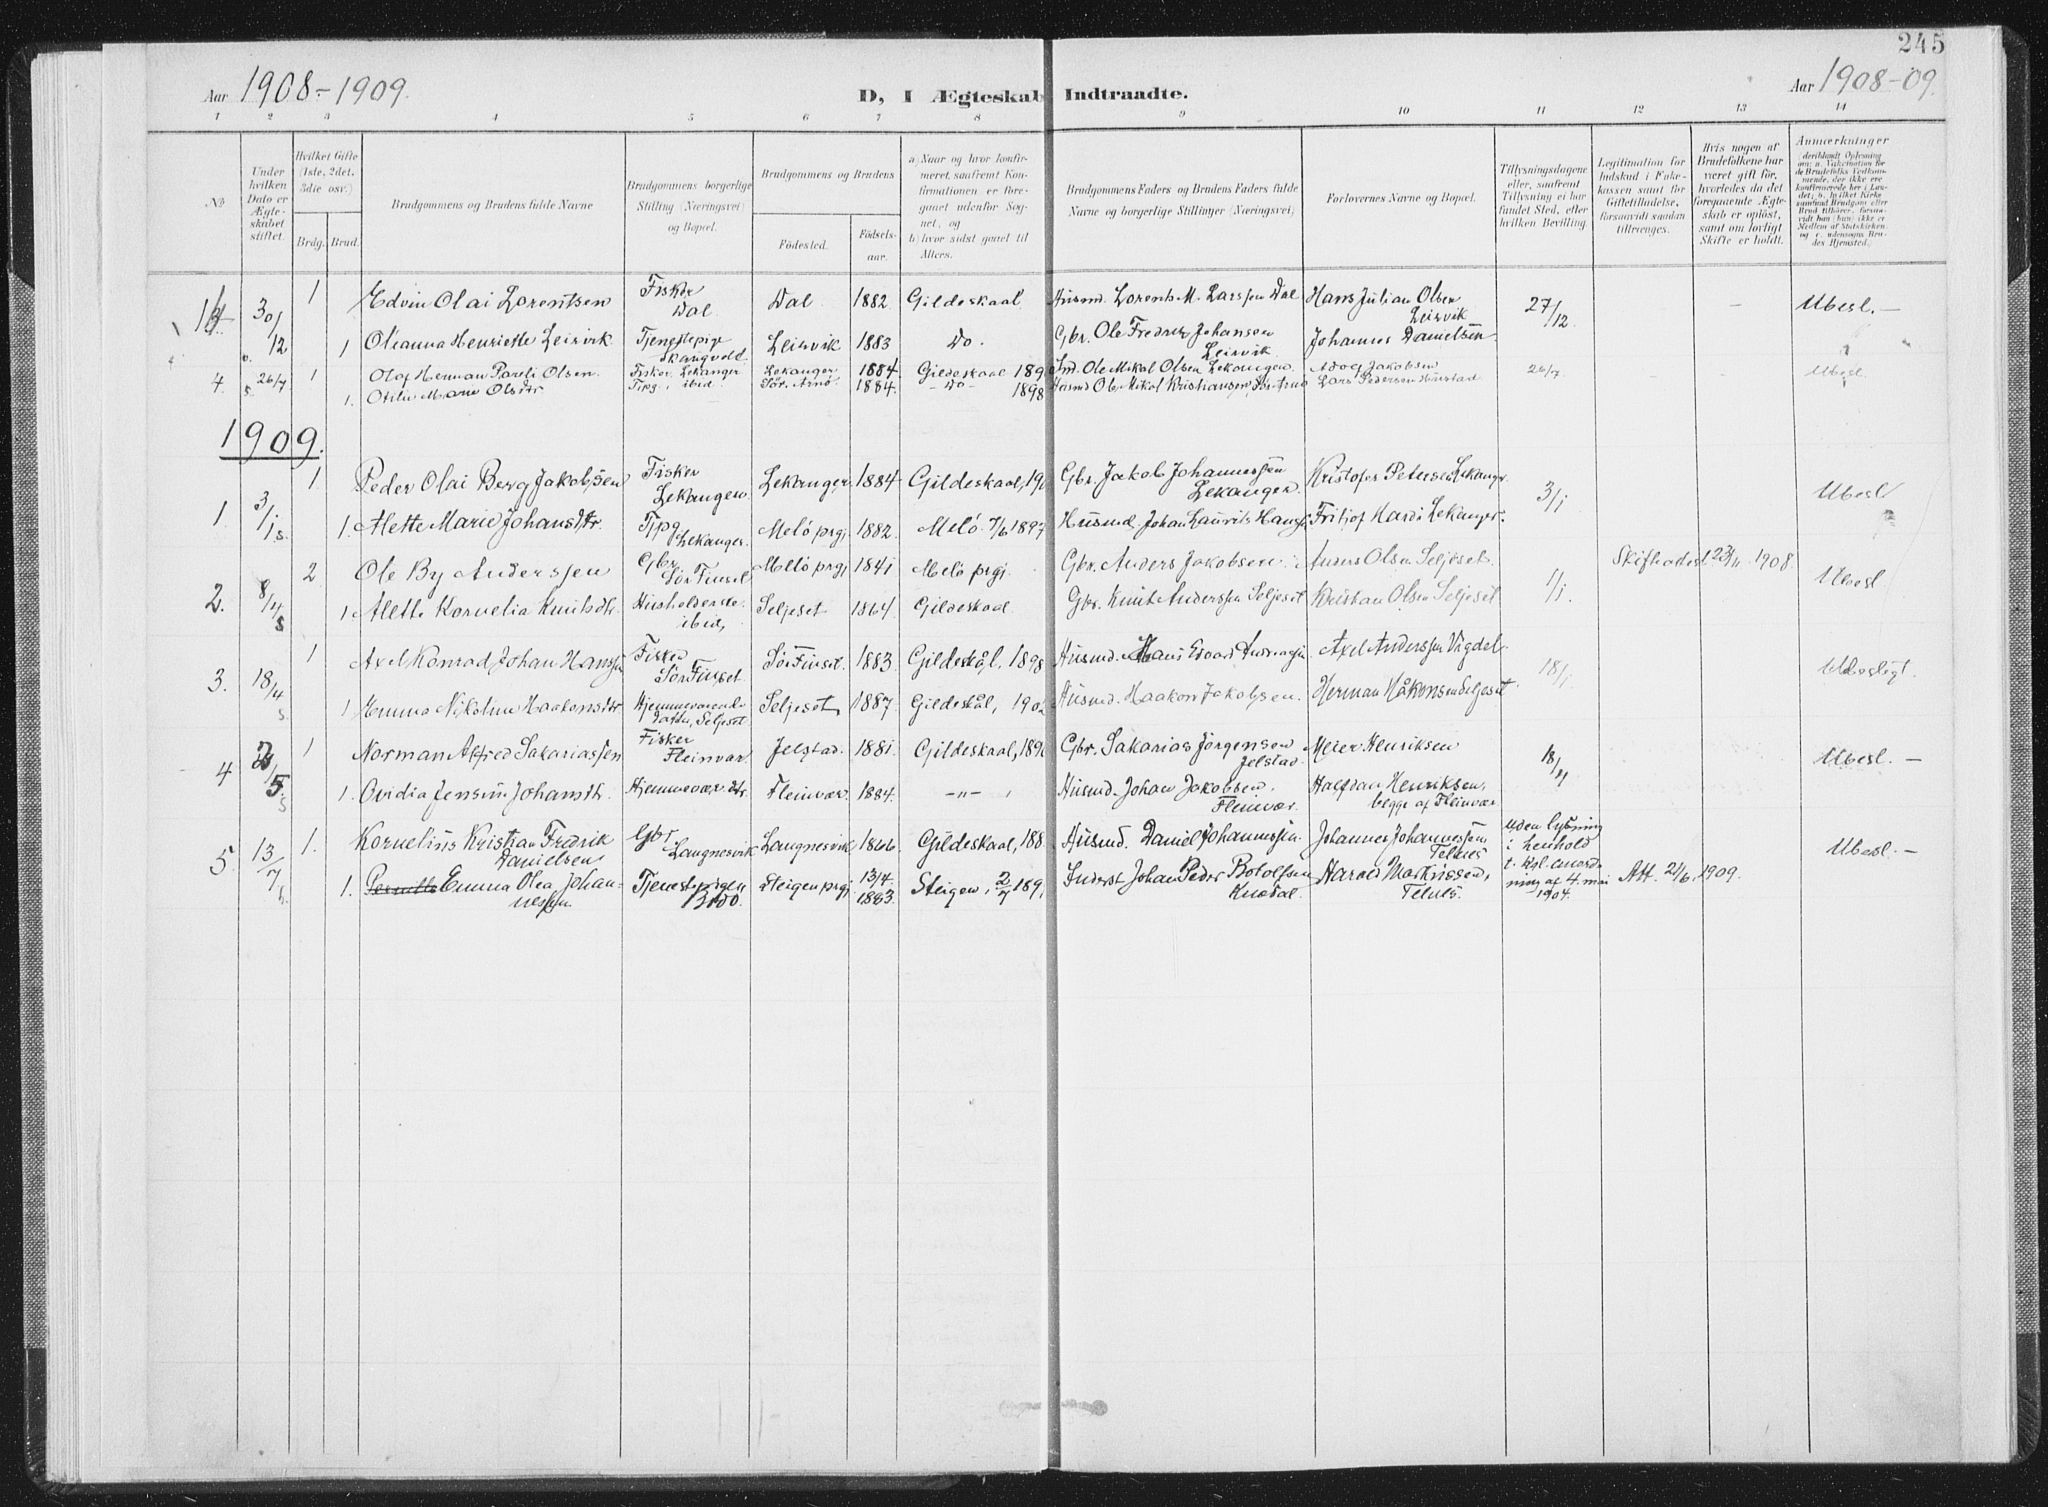 245
Aar 1908-1909.
D, I Ægteskab Indtraadte.
Aar 1908-09.
1 2 3 4 5 6 7 8 9 10 11 12 13 14
No
Under hvilken Dato er Ægteskabet stiftet.
Hvilket Gifte (1ste, 2det, 3die osv.)
Brdg. Brud.
Brudgommens og Brudens fulde Navne
Brudgommens borgerlige Stilling (Næringsvei) og Bopæl.
Brudgommens og Brudens
Fødested. Fødselsaar.
a) Naar og hvor konfirmeret, saafremt Konfirmationen er foregaaet udenfor Sognet, og
b) hvor sidst gaaet til Alters.
Brudgommens Faders og Brudens Faders fulde Navne og borgerlige Stillinger (Næringsvei)
Forlovernes Navne og Bopæl.
Tillysningsdagene eller, saafremt Tillysning ei har fundet Sted, efter hvilken Bevilling.
Legitimation for Indskud i Fakkassen samt for Giftetilladelse, forsaavidt saadan tiltrænges.
Hvis nogen af Brudefolkene har været gift før, hvorledes da det foregaaende Ægteskab er opløst, samt om lovligt Skifte er holdt.
Anmærkninger
30/12 1 Edvin Olai Lorentsen Fisker Dal Dal 1882 Gildeskaal Husmd. Lorents M. Larssen Dal Hans Julian Olsen Leisvik 27/12 Ubesl. —
1 Oleanna Henriette Leisvik Tjenestepige Leisvik 1883 Do. Gbr. Ole Fredrik Johansen Leisvik Johannes Danielsen
4. 26/7 1 Olaf Herman Pareli Olsen Fisker, Lekanger Lekanger 1884 Gildeskaal 189 Ind. Ole Mikal Olsen Lekangen Adolf Jakobsen 26/7 Ubesl
1. Marie Olsdtr Tjpg. ibid Sør. Arnø 1884. — Do — 1898 Husmd Ole Mikal Kristiansen, Sør. Arnø Lars Pedersen
1909.
1. 3/1 s. 1 Peder Olai Berg Jakobsen Fisker Lekangen Lekanger 1884 Gildeskaal, 19 Gbr. Jakob Johannessen Lekanger Kristofer Petersen Lekanger 3/1 Ubesl
1. Alette Marie Johansdtr. Tjpg Lekanger. Melø prgj 1882. Melø 7/6 1897 Husmd Johan Laurits Hansen Fritjof Lekanger.
2. 8/4 s 2 Ole By Anderssen Gbr. Sør Finset Melø prgj 1841 Melø prgj. Gbr. Anders Jakobsen Anders Olsen Seljeset. 1/1 Skifteattest 23/11 1908. Ubesl.
1 Alette Kornelia Knutsdtr. Husholderske ibid, Seljeset 1864 Gildeskaal Gbr. Knut Anderssen Seljeset Kristian Olsen Seljeset
3. 18/4 s. 1 Axel Konrad Johan Hanssen Fisker Sør Finset Sør Finset. 1883 Gildeskål. 1898 Husmd. Hans Edvard Andreassen Axel Anderssen Vigdel 18/1
1 Nikoline Haakonsdtr. Hjemmeværende datter, Seljeset Seljeset 1887 Gildeskål, 1902 Husmd. Haakon Jakobsen. Herman Håkonsen Seljeset
4 2/5 s 1 Norman Alfred Sakariassen Fisker Fleinvær. Jelstad. 1881. Gildeskaal, 189 Gbr. Sakarias Jørgensen Jelstad. Meier Henriksen 18/4 Ubesl. —
1. Ovidia Jensine Johansdtr. Hjemmevær. dtr. Fleinvær. 1884. — " — Husmd. Johan Jakobsen. Fleinvær. Halfdan Henriksen, begge af Fleinvær
5. 13/7 h. 1. Kornelius Kristian Fredrik Danielsen Gbr Langnesvik Langnesvik 1866 Gildeskaal, 188 Husmd. Daniel Johannessen Johannes Johannessen Telnes Uden lysning i henhold t. kgl. anordning af 4. mai 1904. Ubesl. —
1. Emma Olea Johannessen Tjenestepigen Bodø. Steigen prgj 13/4 1883 Steigen, 2/7 189 Inderst Johan Peder Botolfsen Harald Markussen, Telnes. Att. 21/6 1909.